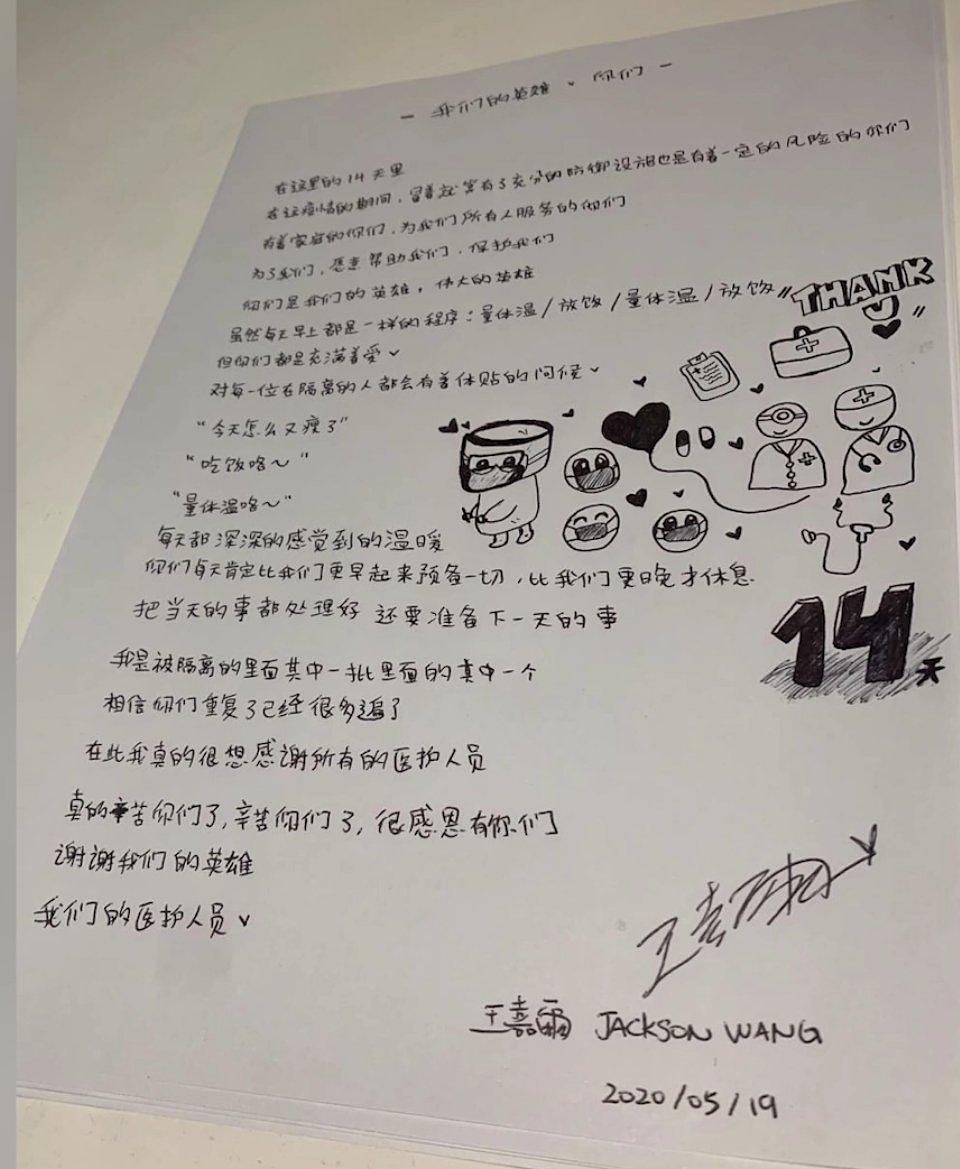 — 我们的英雄 ♥ 你们 —
在这里的14天里
在这疫情的期间，冒着就算有了充分的防御设施也是有着一定的风险的你们
有着家庭的你们，为我们所有人服务的你们
为了我们，愿意帮助我们，保护我们
你们是我们的英雄，伟大的英雄
虽然每天早上都是一样的程序：量体温/放饭/量体温/放饭
但你们都是充满着爱♥
对每一位在隔离的人都会有着体贴的问候♥
“今天怎么又瘦了”
“吃饭咯～”
“量体温咯～”
每天都深深的感觉到的温暖
你们每天肯定比我们更早起来预备一切，比我们更晚才休息
把当天的事都处理好 还要准备下一天的事
我是被隔离的里面其中一批里面的其中一个
相信你们重复了已经很多遍了
在此我真的很想感谢所有的医护人员
真的辛苦你们了，辛苦你们了，很感恩有你们
谢谢我们的英雄
我们的医护人员♥
“THANK
U”
14天
王嘉尔
王嘉爾 JACKSON WANG
2020/05/19